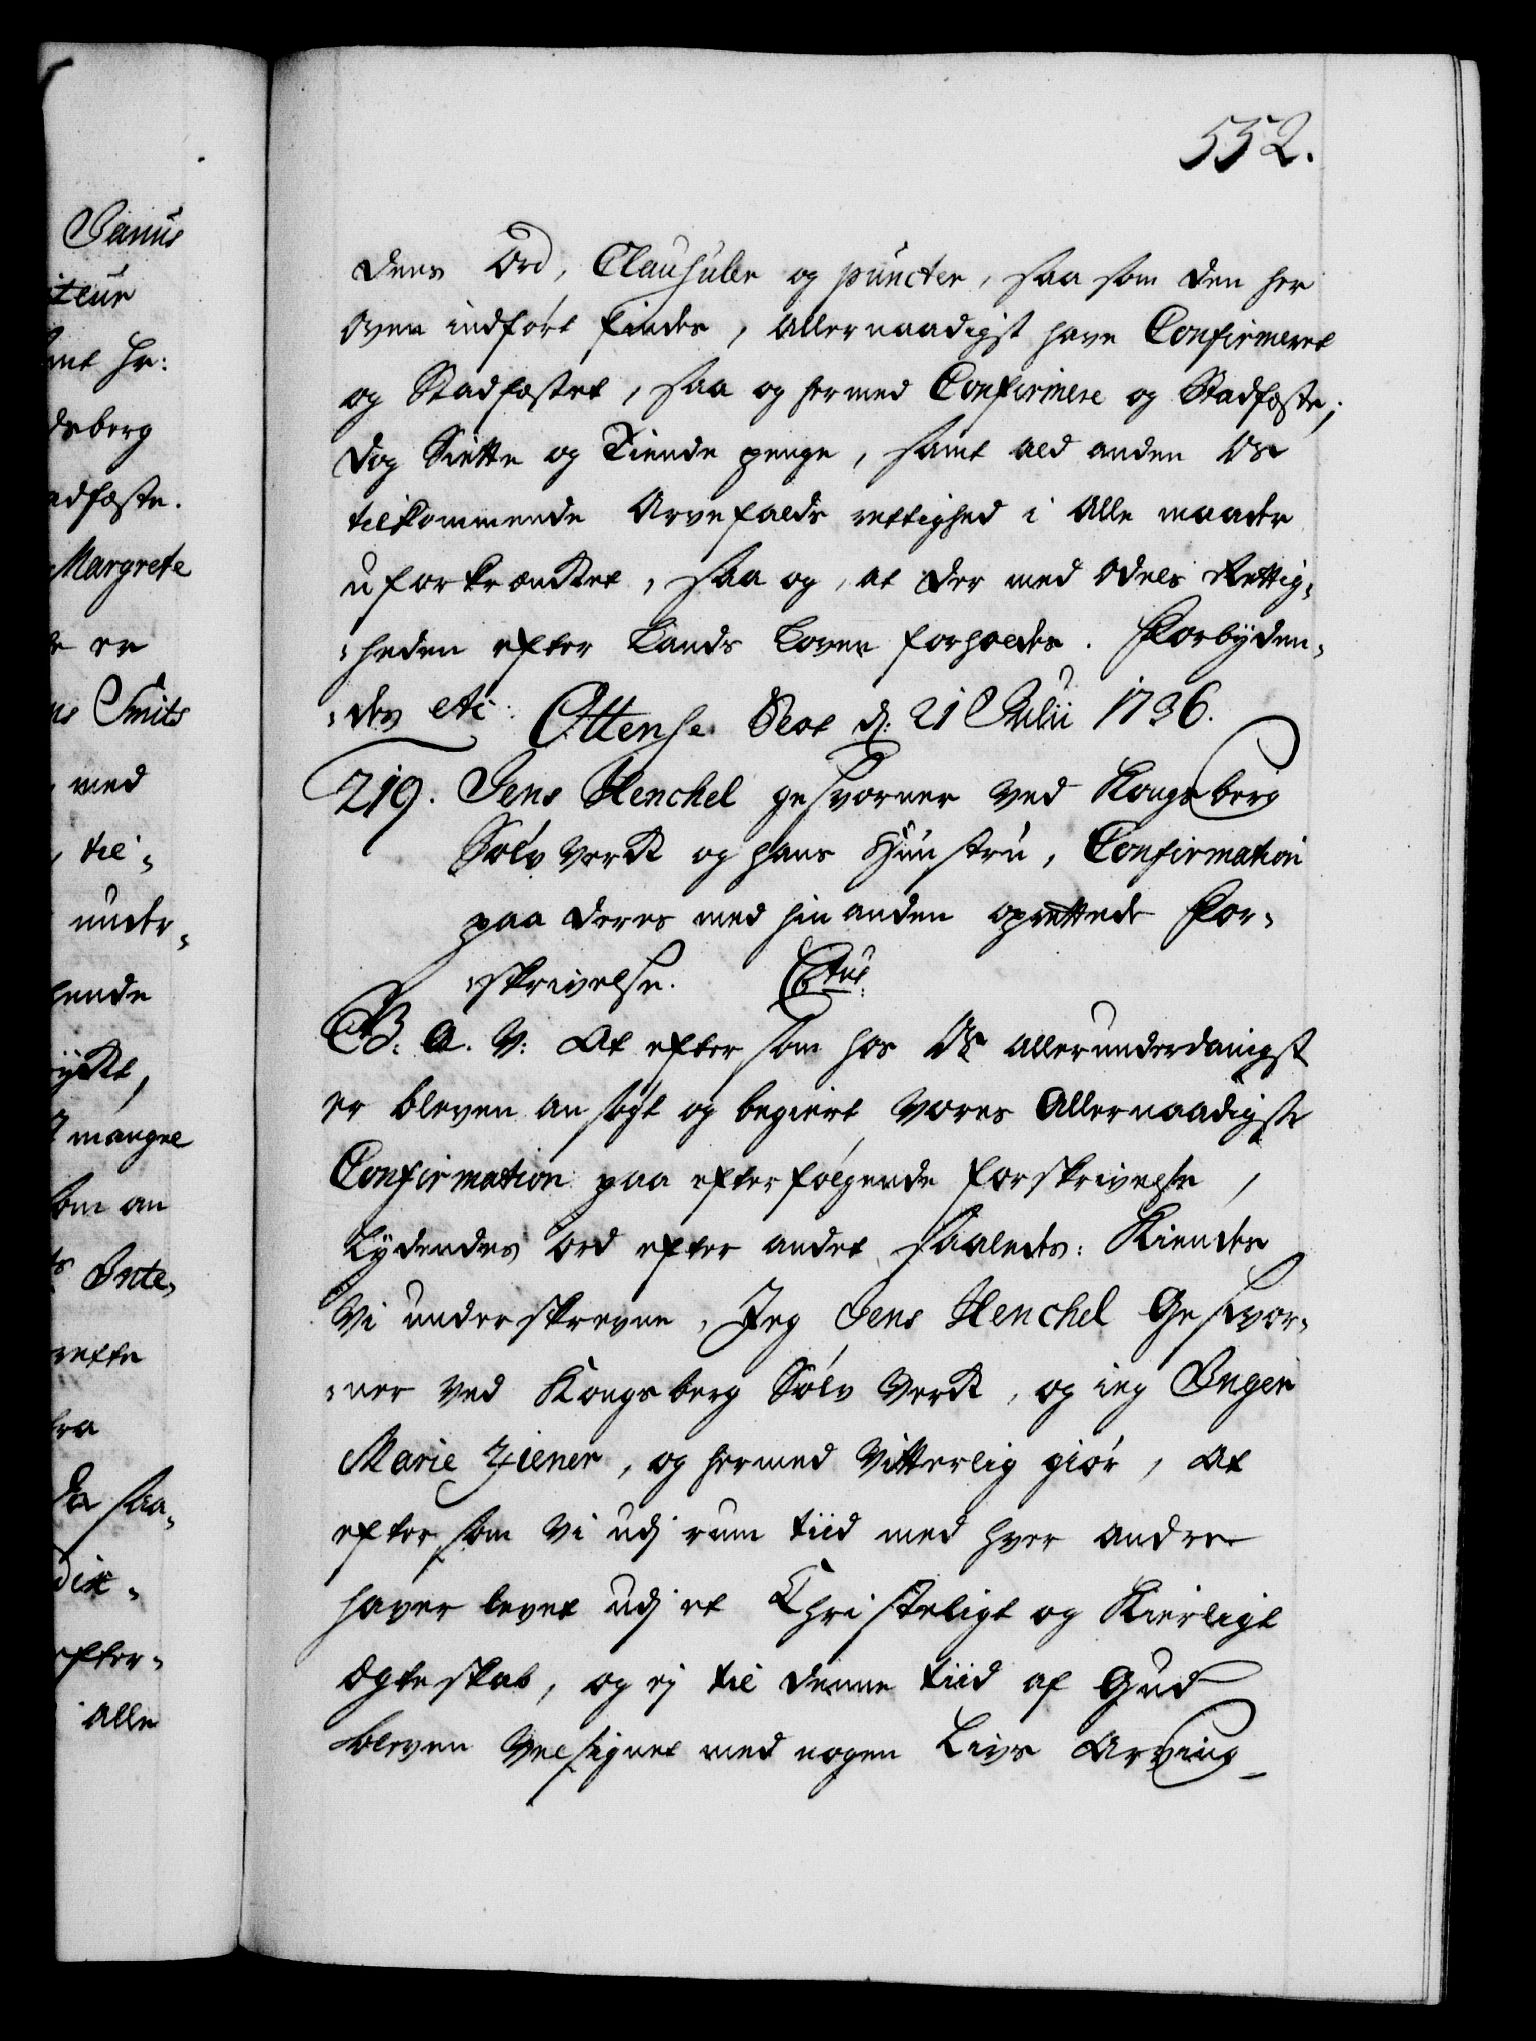 552.
dens Ord, Clausuler og puncter, saa som den her
oven indført findes, allernaadigst have Confirmeret
og Stadfæstet, saa og hermed Confirmere og Stadfæste;
dog Siette og Tiende penge, samt ald anden Os
tilkommende Arvefalds rettighed i Alle maader
uforkrænket, saa og, at der med Odels Rettig-
-heden efter Lands Loven forholdes. Forbyden-
-des etc: Ottense Slot d: 21 Julii 1736.
219. Jens Henchel gesvorner ved Kongsberg
Sølv Verk og hans Hustru, Confirmation
paa deres med hinanden oprettede For-
-skrivelse.
G. A. V: At eftersom hos Os allerunderdanigst
er bleven ansøgt og begiert Vores Allernaadigste
Confirmation paa efterfølgende forskrivelse,
Lydendes Ord efter andet saaledes: Kiendes
Vi underskrevne, Jeg Jens Henchel Gesvor-
-ner ved Kongsberg Sølv Verk, og ieg Inger
Marie Ziener, og hermed Vitterlig giør, At
eftersom Vi udj rum tiid med hver andre
haver levet udj et Christeligt og Kierligt
Ægteskab, og ej til denne tiid af Gud
bleven Velsignet med nogen Livs Arving
Janus
iteur
mt Hr:
dsberg
adfæste.
Margrete
er
Smits
med
til-
under-
hende
ykt,
mangel
som an
Inte-
rette
fra
saa-
efter-
alle